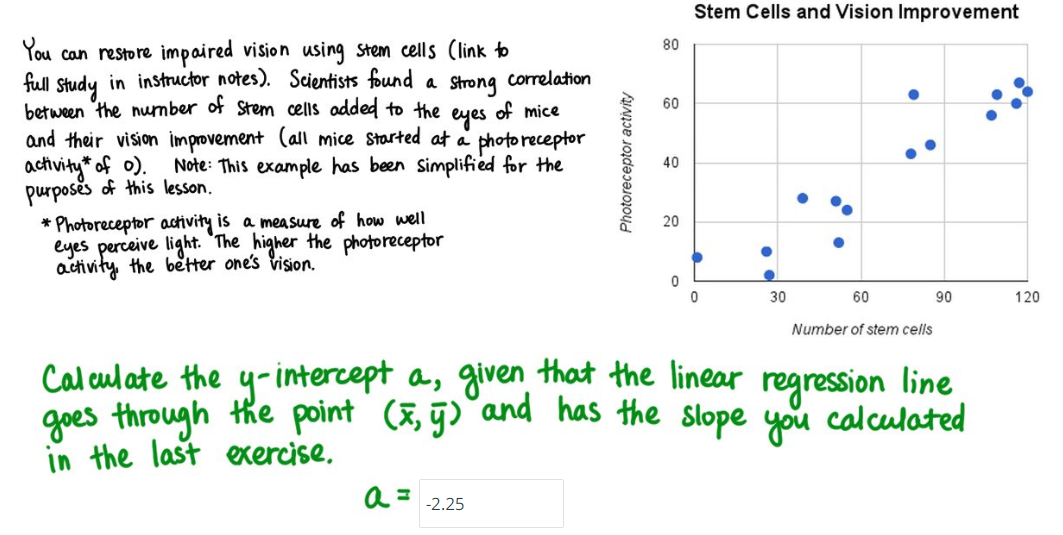 Stem Cells and Vision Improvement
You can restore impaired vision using stem cells (link to
full study in instructor notes). Scientists found a strong correlation
between the number of stem cells added to the eyes of mice
and their vision improvement (all mice started at a photoreceptor
activity* of 0). Note: This example has been simplified for the
purposes of this lesson.
* Photoreceptor activity is a measure of how well
eyes perceive light. The higher the photoreceptor
activity, the better one's vision.
Photoreceptor activity
80
60
40
20
0
0 30 60 90 120
Number of stem cells
Calculate the y-intercept a, given that the linear regression line
goes through the point (x̄, ȳ) and has the slope you calculated
in the last exercise.
a = -2.25